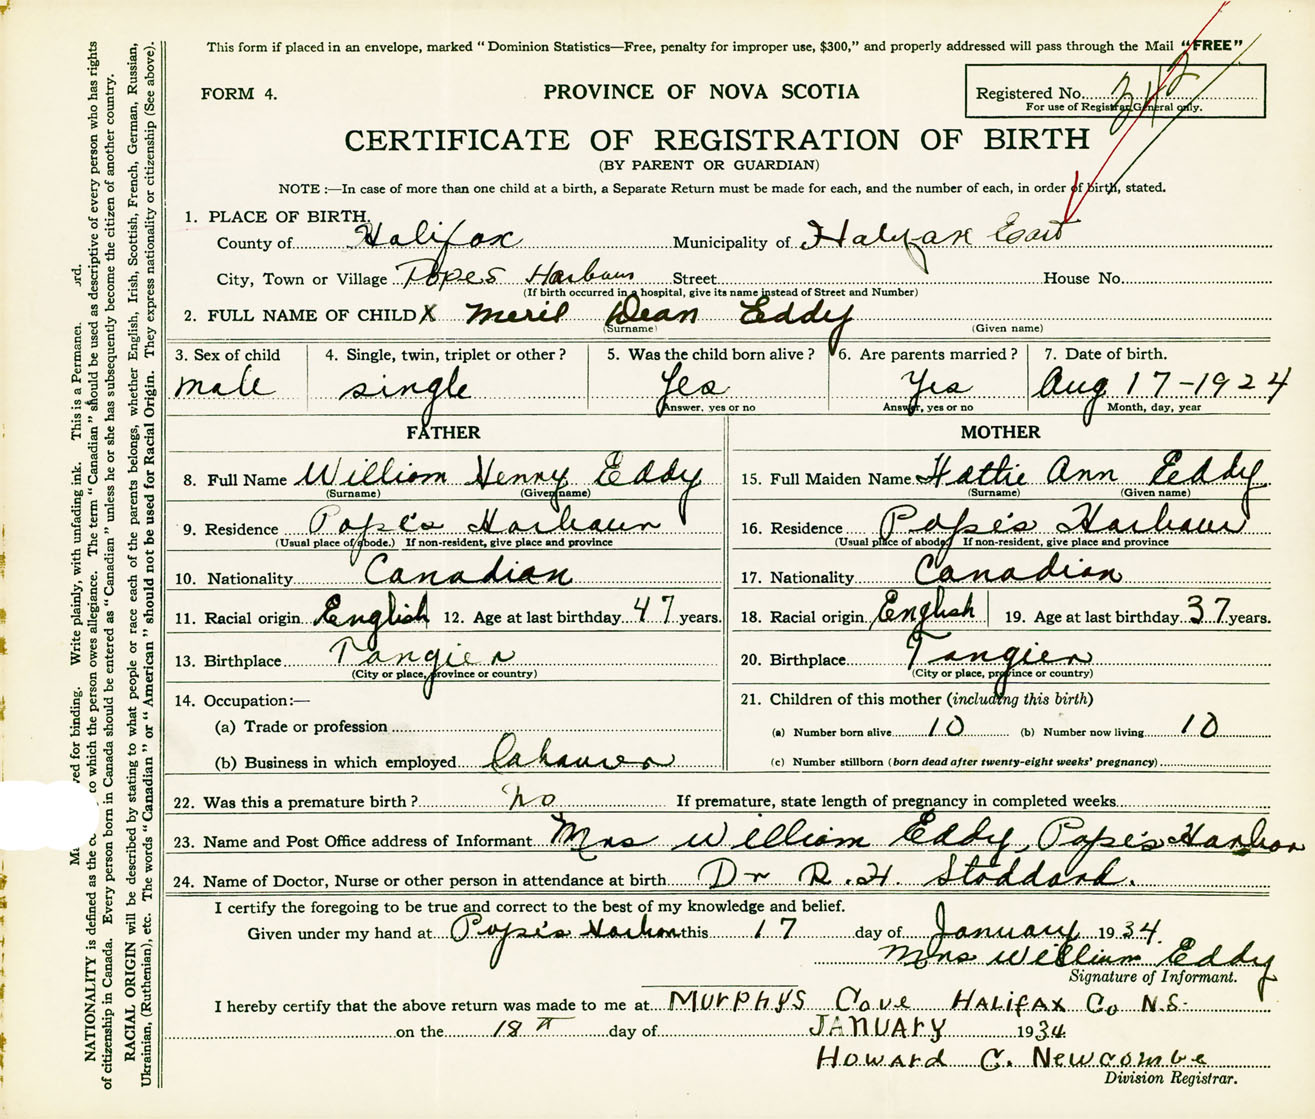 This form if placed in an envelope, marked "Dominion Statistics—Free, penalty for improper use, $300," and properly addressed will pass through the Mail "FREE"
FORM 4.
PROVINCE OF NOVA SCOTIA
Registered No. 242
For use of Registrar General only.
CERTIFICATE OF REGISTRATION OF BIRTH
(BY PARENT OR GUARDIAN)
NOTE :—In case of more than one child at a birth, a Separate Return must be made for each, and the number of each, in order of birth, stated.
1. PLACE OF BIRTH.
County of Halifax Municipality of Halifax East
City, Town or Village Popes Harbour Street House No.
(If birth occurred in a hospital, give its name instead of Street and Number)
2. FULL NAME OF CHILD X Meril Dean Eddy
(Surname) (Given name)
3. Sex of child 4. Single, twin, triplet or other? 5. Was the child born alive? 6. Are parents married? 7. Date of birth.
male single Yes Yes Aug 17-1924
Answer, yes or no Answer, yes or no Month, day, year
FATHER MOTHER
8. Full Name William Henry Eddy 15. Full Maiden Name Hattie Ann Eddy
(Surname) (Given name) (Surname) (Given name)
9. Residence Pope's Harbour 16. Residence Pope's Harbour
(Usual place of abode.) If non-resident, give place and province (Usual place of abode) If non-resident, give place and province
10. Nationality Canadian 17. Nationality Canadian
11. Racial origin English 12. Age at last birthday 47 years. 18. Racial origin English 19. Age at last birthday 37 years.
13. Birthplace Tangier 20. Birthplace Tangier
(City or place, province or country) (City or place, province or country)
14. Occupation:— 21. Children of this mother (including this birth)
(a) Trade or profession (a) Number born alive 10 (b) Number now living 10
(b) Business in which employed (c) Number stillborn (born dead after twenty-eight weeks' pregnancy)
22. Was this a premature birth? No If premature, state length of pregnancy in completed weeks
23. Name and Post Office address of Informant Mrs William Eddy, Pope's Harbor
24. Name of Doctor, Nurse or other person in attendance at birth Dr R. H. Stoddard.
I certify the foregoing to be true and correct to the best of my knowledge and belief.
Given under my hand at Pope's Harbor this 17 day of January 1934.
Mrs William Eddy
Signature of Informant.
I hereby certify that the above return was made to me at MURPHYS COVE HALIFAX CO N.S.
on the 18th day of JANUARY 1934
HOWARD C. NEWCOMBE
Division Registrar.
ved for binding. Write plainly, with unfading ink. This is a Permanent
NATIONALITY is defined as the to which the person owes allegiance. The term "Canadian" should be used as descriptive of every person who has rights
of citizenship in Canada. Every person born in Canada should be entered as "Canadian" unless he or she has subsequently become the citizen of another country.
RACIAL ORIGIN will be described by stating to what people or race each of the parents belongs, whether English, Irish, Scottish, French, German, Russian,
Ukrainian, (Ruthenian), etc. The words "Canadian" or "American" should not be used for Racial Origin. They express nationality or citizenship (See above).